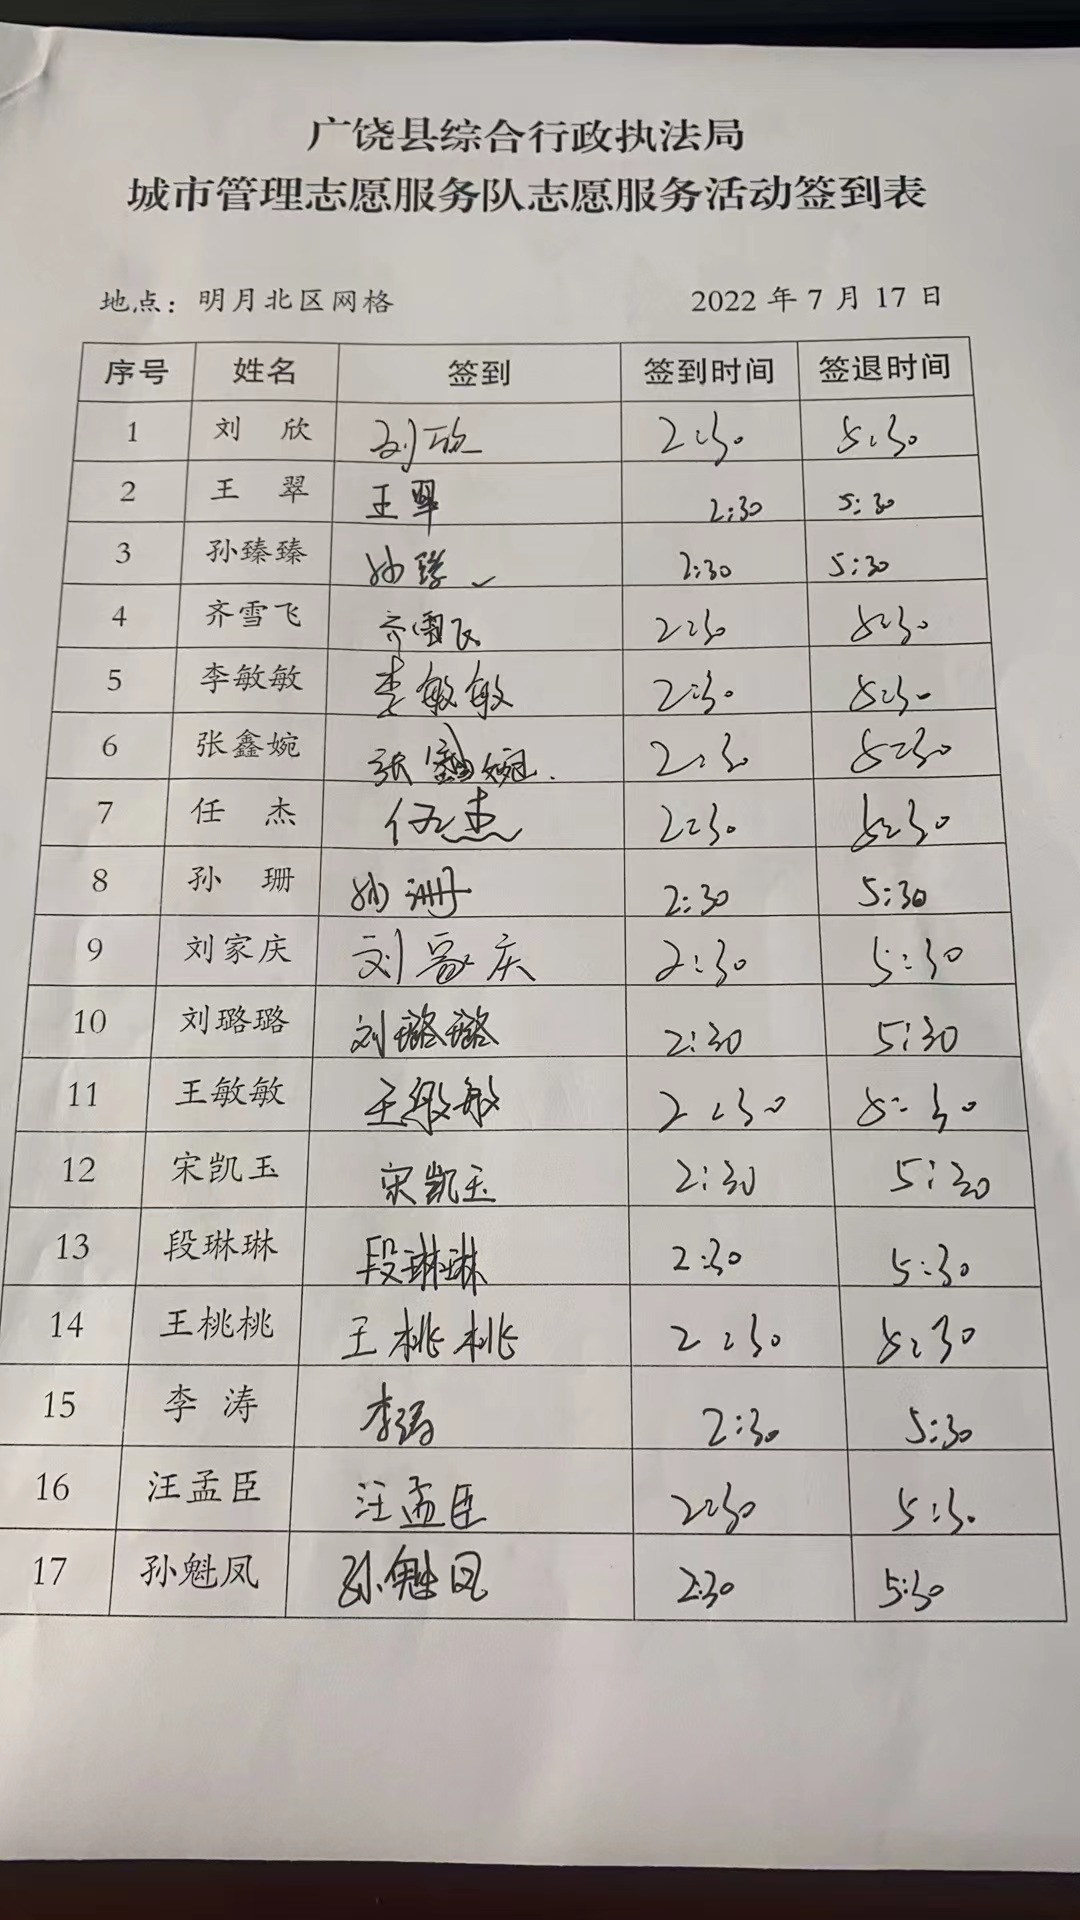 广饶县综合行政执法局
城市管理志愿服务队志愿服务活动签到表
地点：明月北区网格 2022 年 7 月 17 日
序号 姓名 签到 签到时间 签退时间
1 刘欣 刘欣 2:30 5:30
2 王翠 王翠 2:30 5:30
3 孙臻臻 孙臻 2:30 5:30
4 齐雪飞 齐雪飞 2:30 5:30
5 李敏敏 李敏敏 2:30 5:30
6 张鑫婉 张鑫婉 2:30 5:30
7 任杰 任杰 2:30 5:30
8 孙珊 孙珊 2:30 5:30
9 刘家庆 刘家庆 2:30 5:30
10 刘璐璐 刘璐璐 2:30 5:30
11 王敏敏 王敏敏 2:30 5:30
12 宋凯玉 宋凯玉 2:30 5:30
13 段琳琳 段琳琳 2:30 5:30
14 王桃桃 王桃桃 2:30 5:30
15 李涛 李涛 2:30 5:30
16 汪孟臣 汪孟臣 2:30 5:30
17 孙魁凤 孙魁凤 2:30 5:30